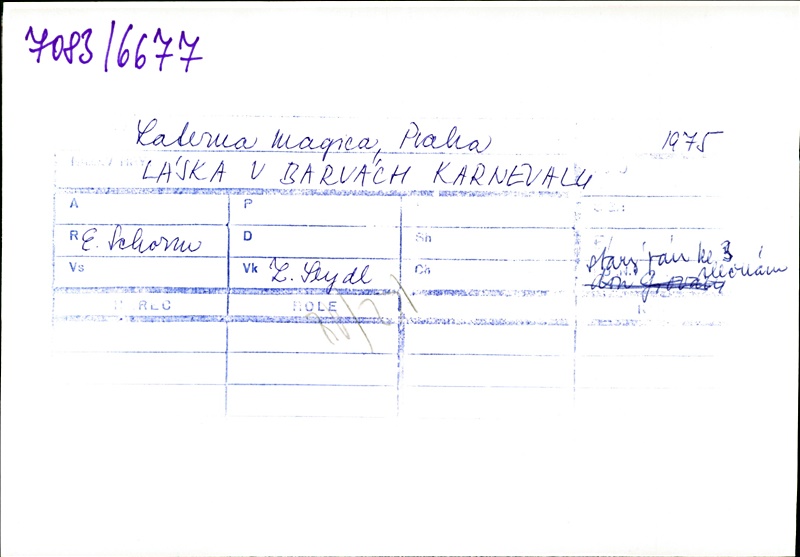 7083/6677
Laterna magica, Praha 1975
LÁSKA V BARVÁCH KARNEVALU
A P
R E. Schorm D Sh
starý pán ke 3
Vs Vk Z. Seydl Ch
slečnám
REC ROLE K